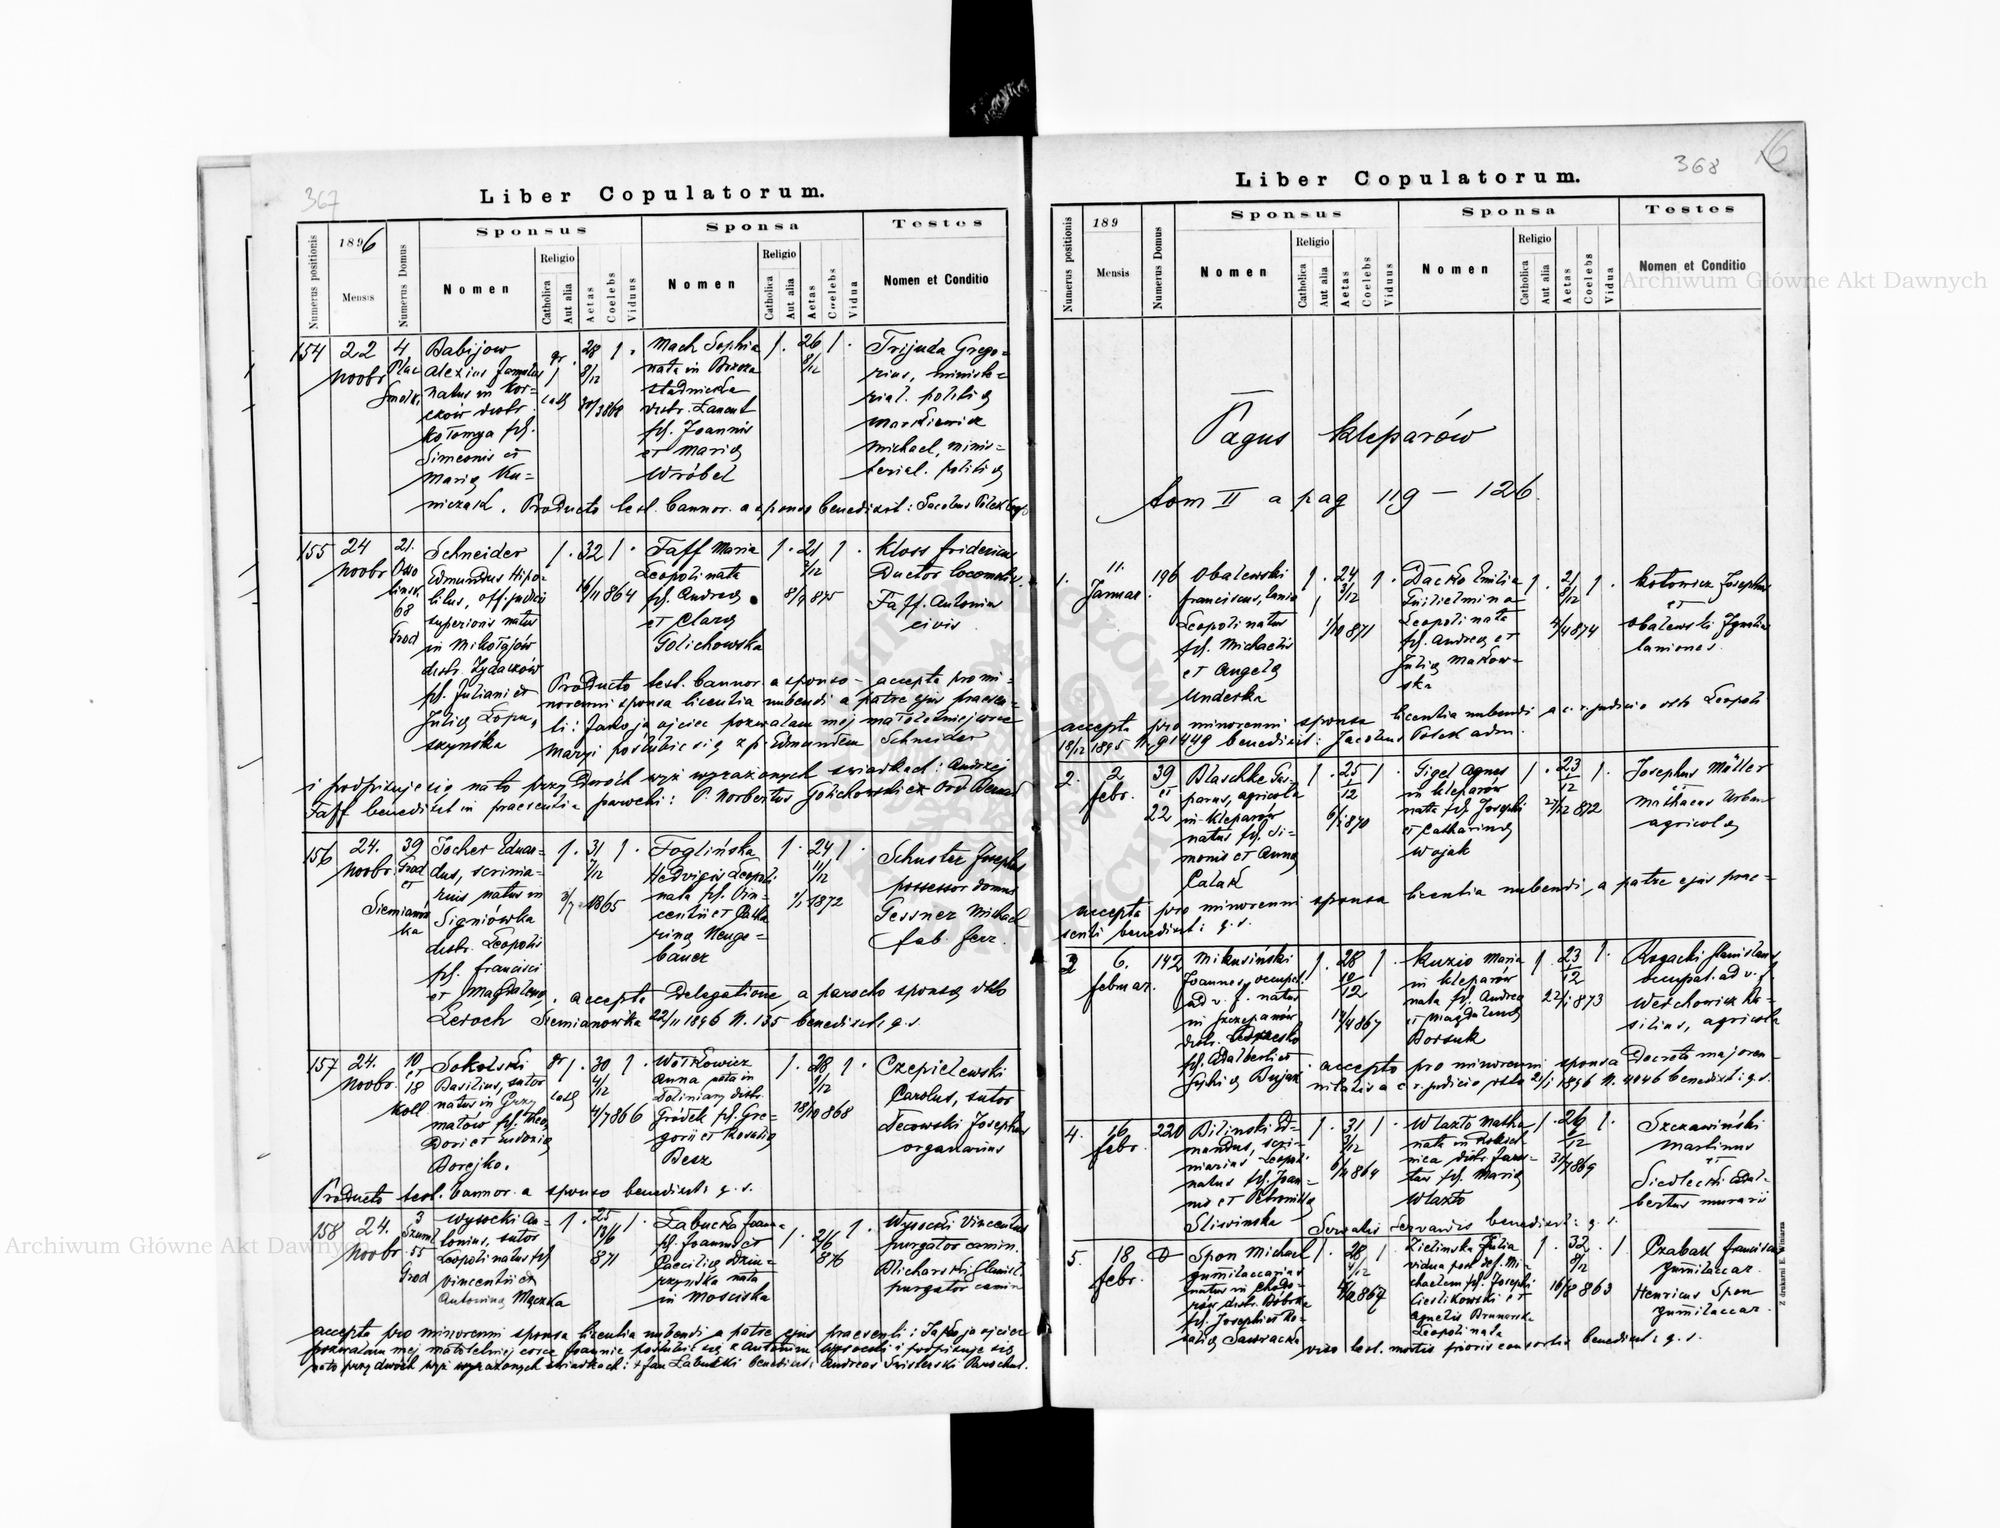 367
Liber Copulatorum.
Numerus positionis
1896
Mensis
Numerus Domus
Sponsus
Nomen
Religio
Catholica
Aut alia
Aetas
Coelebs
Viduus
Sponsa
Nomen
Religio
Catholica
Aut alia
Aetas
Coelebs
Vidua
Testes
Nomen et Conditio
154
22
Noobr
4
Babijow
Alexius
natus in
distr.
Kołomya fil.
Simeonis et
Mariae
gr
cath
28
8/12
Mach Sophia
nata in
distr. Łancut
fil. Joannis
et Mariae
Wróbel
26
8/12
Trijuda Grego-
rius, ministe-
rial. politicae
Markiewicz
Michael, minis-
terial. politicae
Producto test. bannor. a sponso benedixit: Jacobus
155
24
Noobr
21.
Osso
linsk.
68
Grod
Schneider
Edmundus Hipo-
litus, off. judicii
superioris natus
in Mikołajów
distr. Żydaczów
fil. Juliani et
Juliae Łopu-
szyńska
32
16/11 864
Faff Maria
Leopoli nata
fil. Andreae
et Clarae
Golichowska
21
2/12
8/9 875
Kloss Fridericus
Ductor locomotiv.
Faff Antonius
civis
Producto test. bannor. a sponso - accepta pro mi-
norenni sponsa licentia nubendi a patre ejus praesen-
ti: Jako ja ojciec pozwalam mej małoletniej córce
Maryi poślubić się z p. Edmundem Schneider
i podpisuję się na to przy dwóch wyż wyrażonych świadkach: Andrzej
Faff benedixit in praesentia parochi: P. Norbertus Golichowski ex Ord Bernard
156
24.
Noobr.
39
Grod
et
Siemianów
ka
Tocher Eduar-
dus, scrinia-
rius natus in
Signiówka
distr. Leopolis
fil. Francisci
et Magdalenae
Leroch
31
7/12
1865
Foglińska
Hedvigis Leopoli
nata fil. Vin-
centii et Catha
rinae Neuge-
bauer
24
11/12
1872
Schuster Josephus
possessor domus
Gessner Michael
fab. ferr.
accepta Delegatione a parocho sponsae dtto
Siemianówka 22/11 1896 N. 135 benedixit q. s.
157
24.
Noobr.
10
et
18
Koll
Sokolski
Basilius, sutor
natus in Grzy
małów fil. Theo
dori et Eudoxiae
Borejko.
gr
cath
30
4/12
4/7 866
Wołkowicz
Anna nata in
Doliniany distr.
Gródek fil. Gre-
gorii et Rosaliae
Becz
28
1/12
18/10 868
Czepielewski
Carolus, sutor
Decowski Josephus
organarius
Producto test. bannor. a sponso benedixit q. s.
158
24.
Noobr
3
Szuml
55
Grod
Wysocki An-
tonius, sutor
Leopoli natus fil
Vincentii et
Antoninae Mączka
25
13/6
871
Łabucka Joanna
fil. Joannis et
Caeciliae Dziu-
rzyńska nata
in Mosciska
2/6
876
Wysocki Vincentius
purgator camin.
Blicharski Stanisl.
purgator camin
accepta pro minorenni sponsa licentia nubendi a patre ejus praesenti: Jako ja ojciec
pozwalam mej małoletniej córce Joannie poślubić się z Antonim Wysocki i podpisuję się
na to przy dwóch wyż wyrażonych świadkach: Jan Łabucki benedixit: Andreas Parochus.
368
16
Liber Copulatorum.
Numerus positionis
189
Mensis
Numerus Domus
Sponsus
Nomen
Religio
Catholica
Aut alia
Aetas
Coelebs
Viduus
Sponsa
Nomen
Religio
Catholica
Aut alia
Aetas
Coelebs
Vidua
Testes
Nomen et Conditio
Pagus Kleparów
tom II a pag 119 – 126.
1.
11.
Januar.
196
Obalewski
Franciscus, lanio
Leopoli natus
fil. Michaelis
et Angelae
Underka
24
3/12
1/10 871
Daćko Emilia
Guilielmina
Leopoli nata
fil. Andreae et
Juliae Makow-
ska
21
8/12
4/4 874
Kotowicz Josephus
et
Obalewski Ignatius
laniones.
accepta pro minorenni sponsa licentia nubendi a c. r. judicio dtto Leopoli
18/12 1895 N. 91449 benedixit: Jacobus Polek adm.
2.
2
febr.
39
et
22
Blaschke Gas-
parus, agricola
in Kleparów
natus fil. Si-
monis et Annae
Calak
25
12
6/1 870
Gigel Agnes
in Kleparów
nata fil. Josephi
et Catharinae
Wojak
23
12
27/12 872
Josephus Möller
et
Mathaeus Urban
agricolae
accepta pro minorenni sponsa licentia nubendi a patre ejus prae-
senti benedixit: q. s.
3
6.
februar.
142
Mikusiński
Joannes, occupat.
ad v. f. natus
in Szczepanów
distr. Brzesko
fil. Adalberti et
Sophiae Bujak
28
10
12
12/4 867
Kuzio Maria
in Kleparów
nata fil. Andreae
et Magdalenae
Borsuk
23
12
22/1 873
Rogacki Stanislaus
occupat. ad v. f.
Welchowicz Ba-
silius, agricola
accepto pro minorenni sponsa Decreto majoren-
nitatis a c. r. judicio dtto 21/1 1896 N. 4046 benedixit: q. s.
4.
16
febr.
220
Bilinski Ed-
mundus, scri-
niarius, Leopoli
natus fil. Joan-
nis et Petronillae
Sliwinska
31
3/12
6/11 864
Wlazło Matha
nata in
distr. Jaros-
law fil. Mariae
Wlazło
26
6
12
31/7 869
Szczawiński
Martinus
et
Siedlecki Adal-
bertus murarii
Servatis servandis benedixit: q. s.
5.
18
febr.
Spon Michael
gumilaccarius
natus in Chodo-
rów distr. Bóbrka
fil. Josephi et Ro-
saliae Sawracka
28
4/12
867
Zielinska Julia
vidua post def. Mi-
chaelem fil. Josephi
Cieslikowski et
Agnetis
Leopoli nata
32
9/12
16/8 863
Czabak Franciscus
gumilaccar.
Henricus Spon
gumilaccar.
viso test. mortis prioris consortis benedixit: q. s.
Z drukarni E. Winiarza
Archiwum Główne Akt Dawnych
Archiwum Główne Akt Dawnych